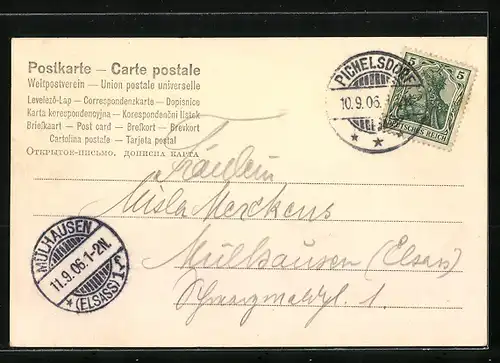 Postkarte — Carte postale
Weltpostverein — Union postale universelle
Levelező-Lap — Correspondenzkarte — Dopisnice
Karta korespondencyjna — Korespondenční lístek
Brefkaart — Post card — Brefkort — Brevkort
Cartolina postale — Tarjeta postal
Открытое-письмо. дописна карта
PICHELSDORF
10.9.06.
* *
5 5
DEUTSCHES REICH
Fräulein
Misla Merckens
Mülhausen (Elsass)
Schwarzwaldpl. 1.
MÜLHAUSEN
11.9.06.1-2N.
* (ELSASS) 1 f